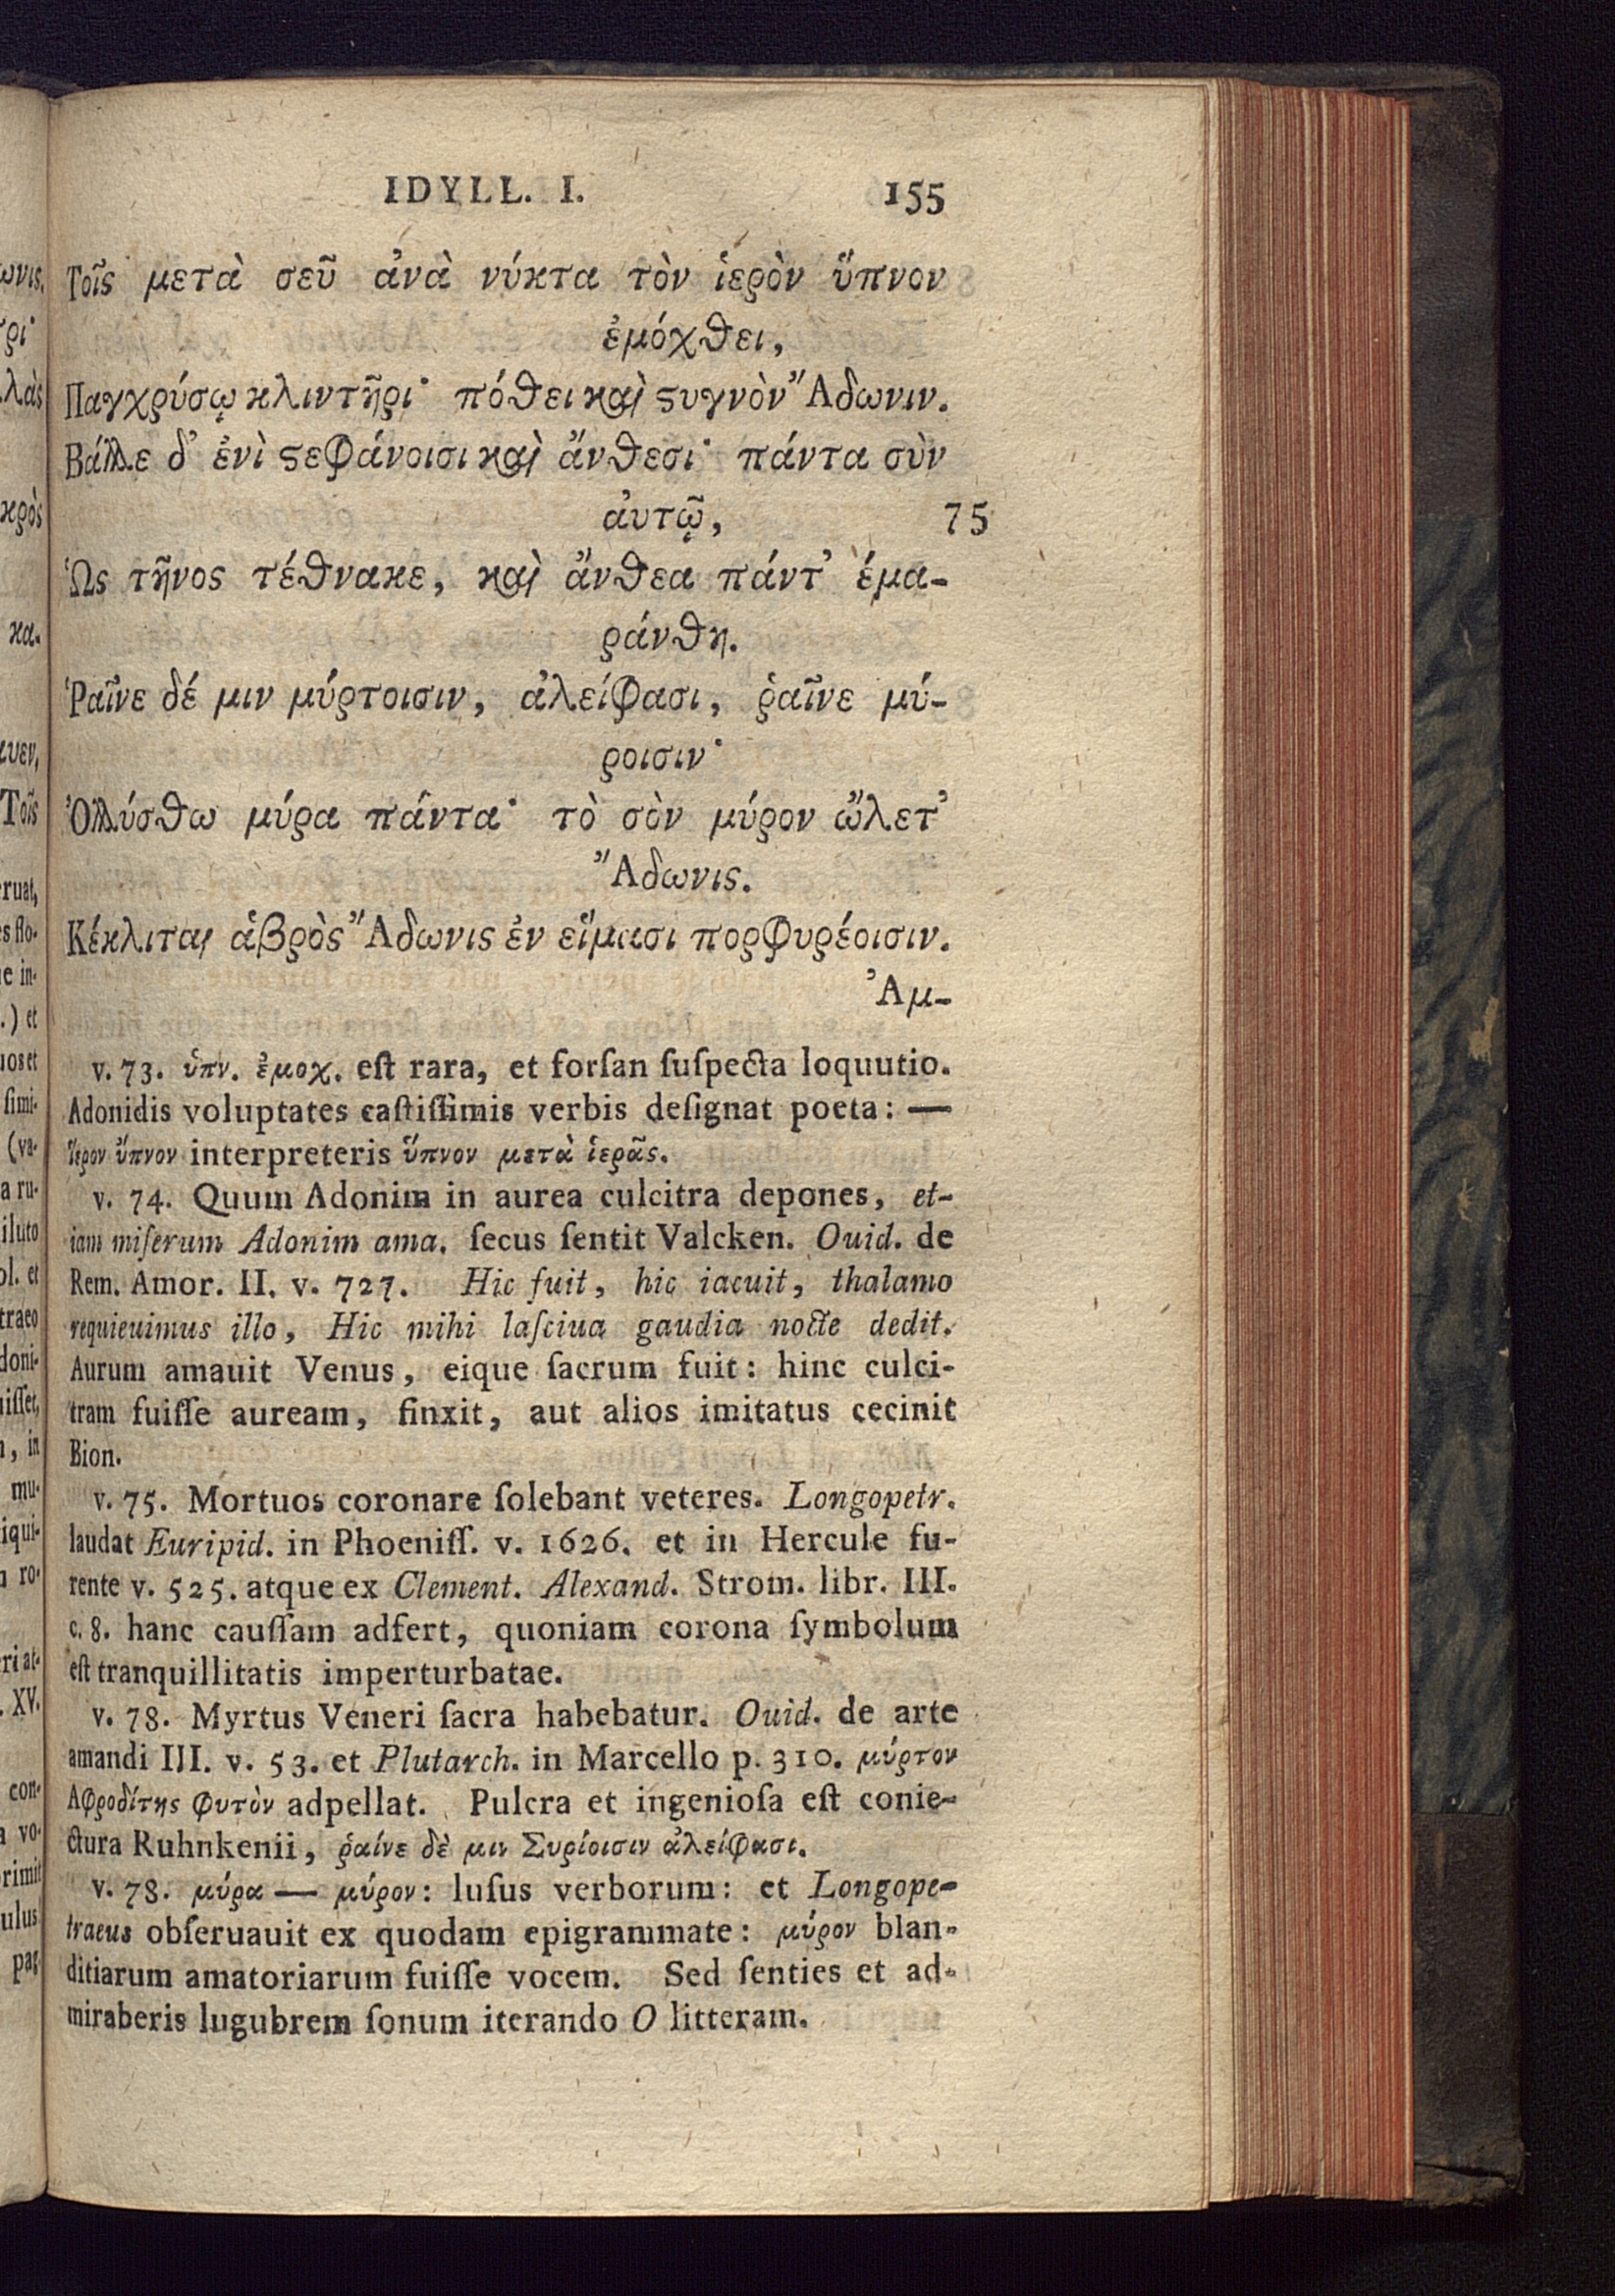 IDYLL. I. 155
Τοῖς μετὰ σεῦ ἀνὰ νύκτα τὸν ἱερὸν ὕπνον
ἐμόχθει,
Παγχρύσῳ κλιντῆρι· πόθει καὶ ϛυγνὸν Ἄδωνιν.
Βάλλε δ' ἐνὶ ϛεφάνοισι καὶ ἄνθεσι· πάντα σὺν
ἀυτῷ, 75
Ὡς τῆνος τέθνακε, καὶ ἄνθεα πάντ' ἐμα-
ράνθη.
Ῥαῖνε δέ μιν μύρτοισιν, ἀλείφασι, ῥαῖνε μύ-
ροισιν·
Ὀλλύσθω μύρα πάντα· τὸ σὸν μύρον ὤλετ'
Ἄδωνις.
Κέκλιται ἁβρὸς Ἄδωνις ἐν εἵμασι πορφυρέοισιν.
Ἀμ-
v. 73. ὑπν. ἐμοχ. eſt rara, et forſan ſuſpecta loquutio.
Adonidis voluptates caſtiſſimis verbis deſignat poeta: —
ἵερον ὕπνον interpreteris ὕπνον μετὰ ἱερᾶς.
v. 74. Quum Adonim in aurea culcitra depones, et-
iam miſerum Adonim ama. ſecus ſentit Valcken. Ouid. de
Rem. Amor. II. v. 727. Hic fuit, hic iacuit, thalamo
requieuimus illo, Hic mihi laſciua gaudia nocte dedit.
Aurum amauit Venus, eique ſacrum fuit: hinc culci-
tram fuiſſe auream, finxit, aut alios imitatus cecinit
Bion.
v. 75. Mortuos coronare ſolebant veteres. Longopetr.
laudat Euripid. in Phoeniſſ. v. 1626. et in Hercule fu-
rente v. 525. atque ex Clement. Alexand. Strom. libr. III.
c. 8. hanc cauſſam adfert, quoniam corona ſymbolum
eſt tranquillitatis imperturbatae.
v. 78. Myrtus Veneri ſacra habebatur. Ouid. de arte
amandi III. v. 53. et Plutarch. in Marcello p. 310. μύρτον
Αφροδίτης φυτὸν adpellat. Pulcra et ingenioſa eſt conie-
ctura Ruhnkenii, ῥαίνε δὲ μιν Συρίοισιν ἀλείφασι.
v. 78. μύρα — μύρον: luſus verborum: et Longope-
traeus obſeruauit ex quodam epigrammate: μύρον blan-
ditiarum amatoriarum fuiſſe vocem. Sed ſenties et ad-
miraberis lugubrem ſonum iterando O litteram.